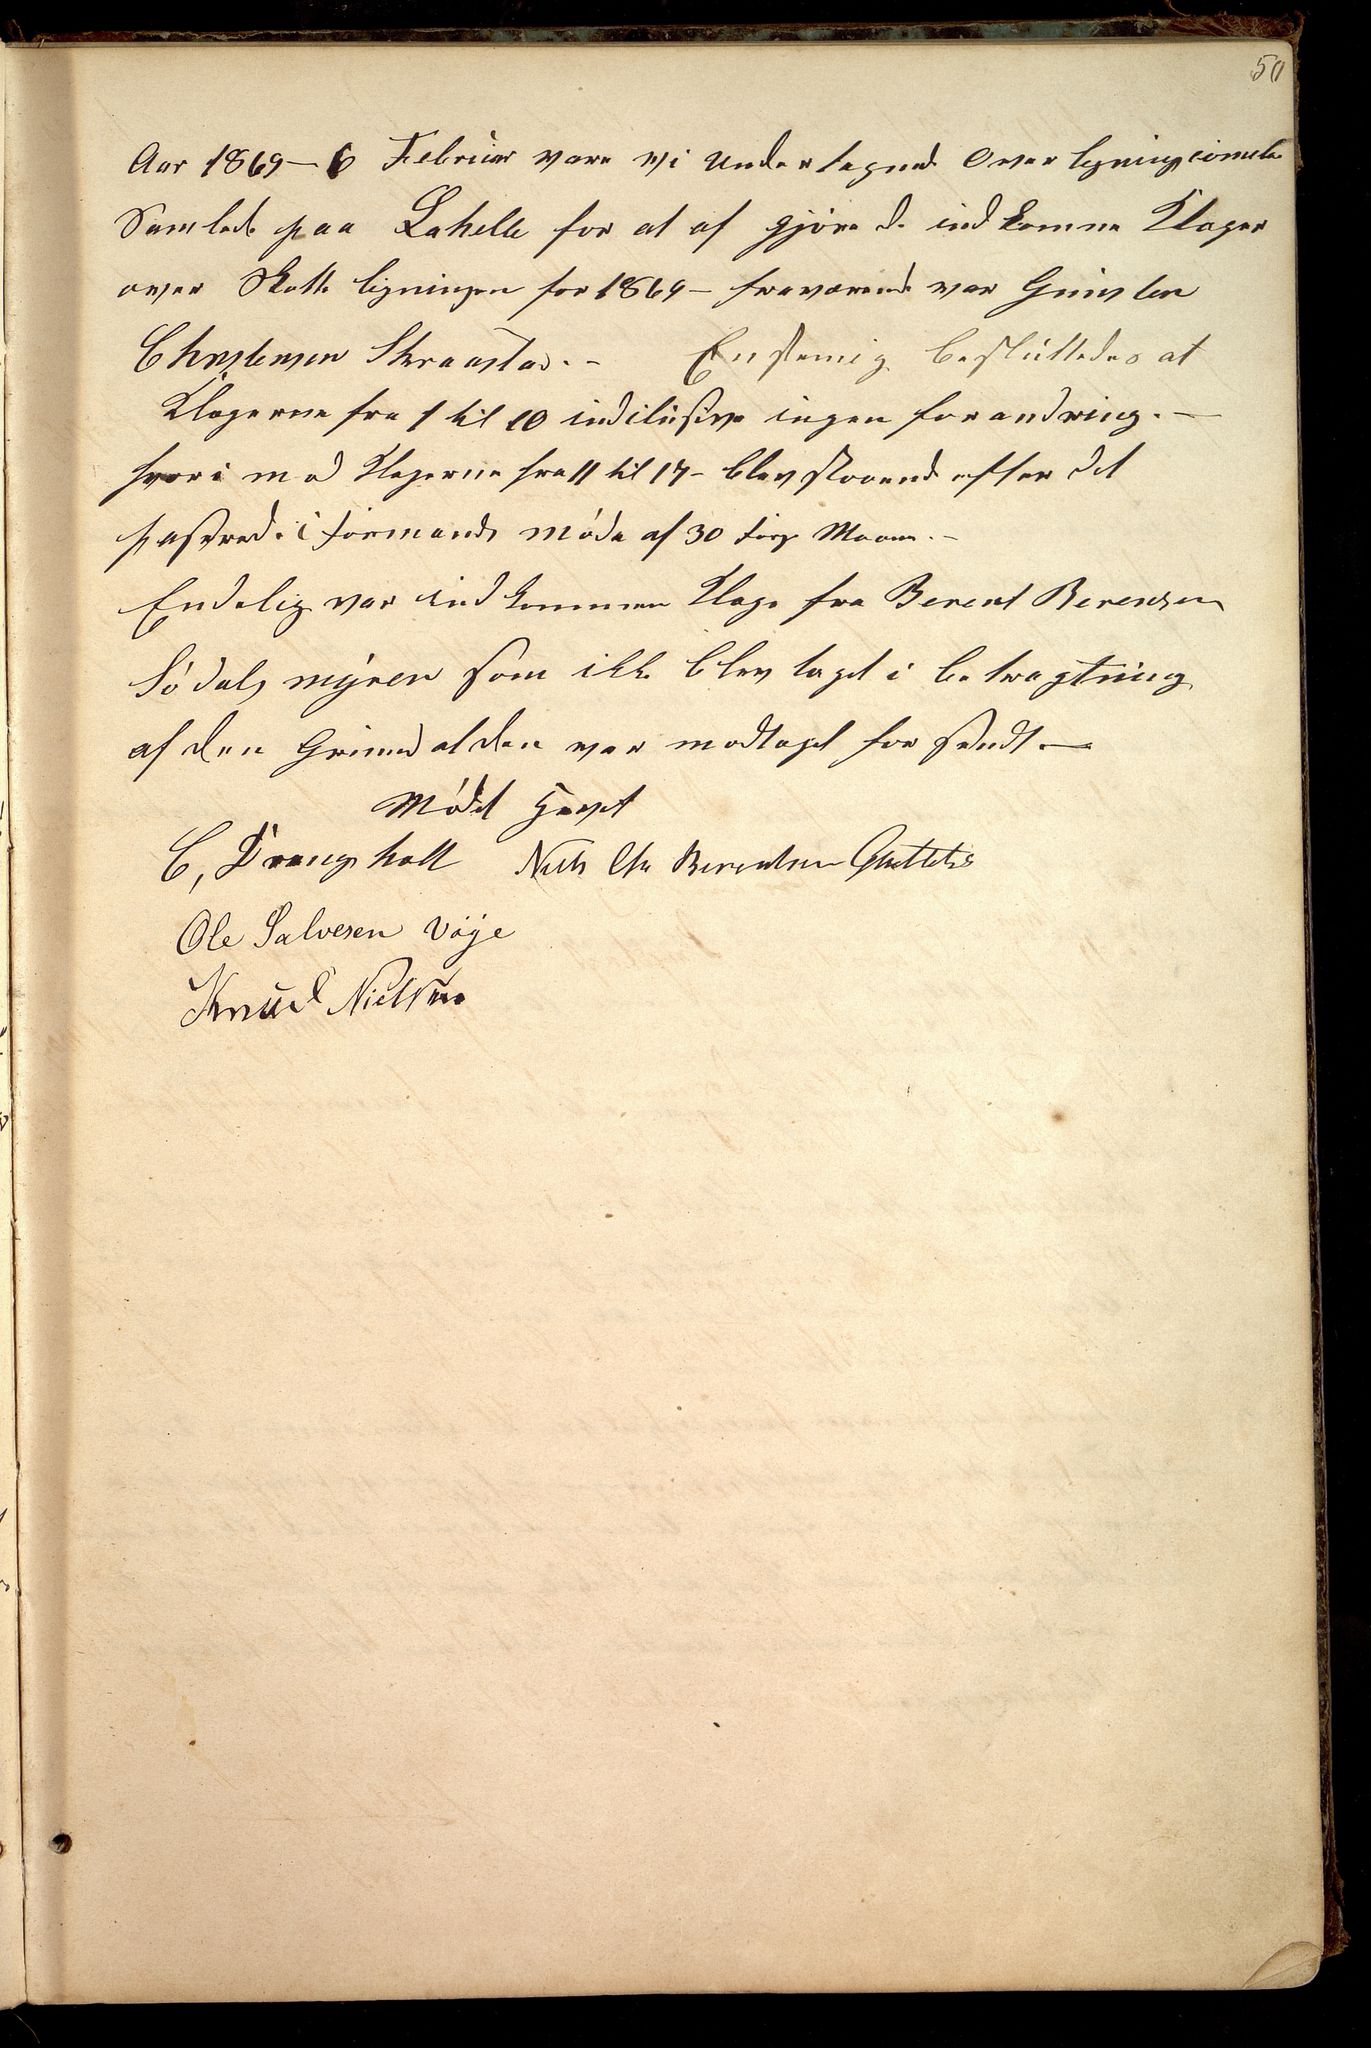 50
Aar 1869 – 6 Februar vare vi Undertegnede Overligningscomite
Samlede paa Lahelle for at afgjøre de indkomne Klager
over Skatteligningen for 1869 – fraværende var
Christensen Skraastad. – Enstemig besluttedes at
Klagerne fra 1 til 10 inclusive ingen forandring. –
hvorimod Klagerne fra 11 til 17 – blev staaende efter det
passerede i Formands møde af 30 forge Maaned. –
Endelig var indkommen Klage fra Berent Berensen
Sødalsmyren som ikke blev taget i betragtning
af den Grund at den var modtaget for sendt. –
Mødet hævet
C, Drangsholt Niels Chr Berentsen
Ole Salvesen Vøje
Knud Nielsen